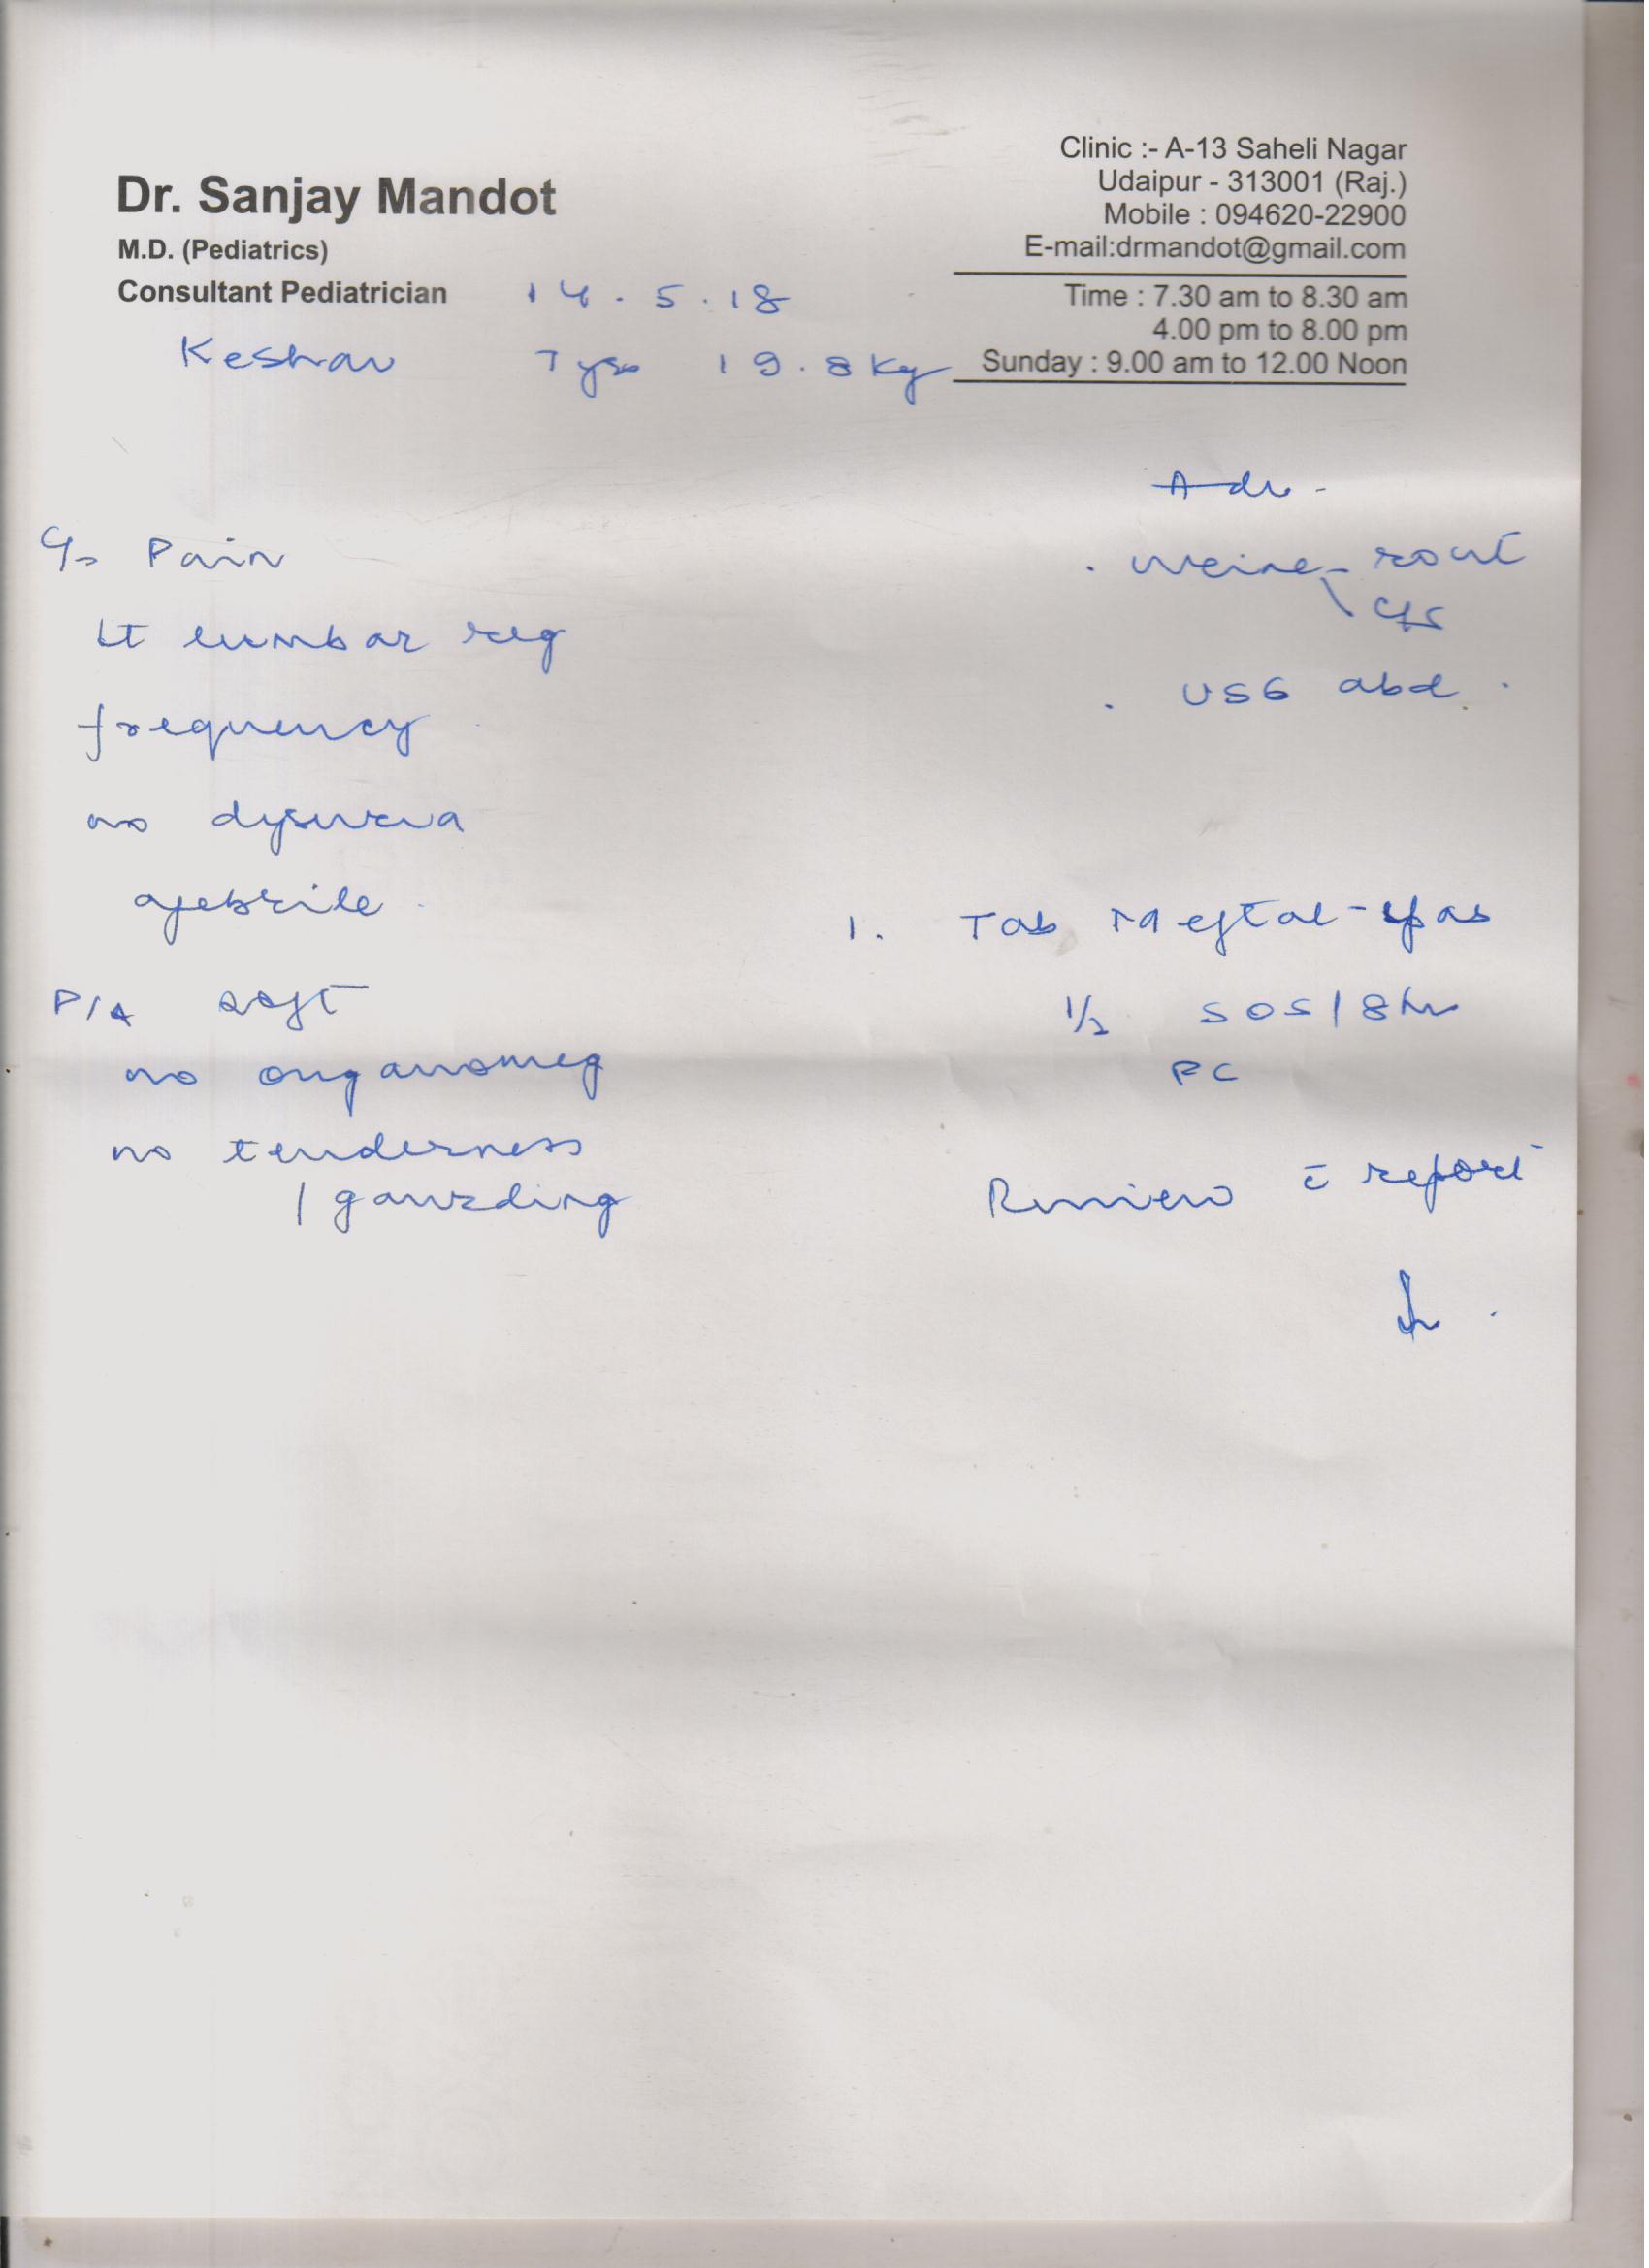 Dr. Sanjay Mandot
M.D. (Pediatrics)
Consultant Pediatrician
Clinic :- A-13 Saheli Nagar
Udaipur - 313001 (Raj.)
Mobile : 094620-22900
E-mail:drmandot@gmail.com
Time : 7.30 am to 8.30 am
4.00 pm to 8.00 pm
Sunday : 9.00 am to 12.00 Noon
14.5.18
Keshav 7 yrs 19.8 Kg
C/o Pain
Lt lumbar reg
frequency
no dysuria
afebrile
P/A soft
no organomeg
no tenderness
/ gaurding
Adv -
. urine - rout
\ c/s
. USG abd.
1. Tab Meftal-spas
1/2 SOS / 8 hr
PC
Review c̄ report